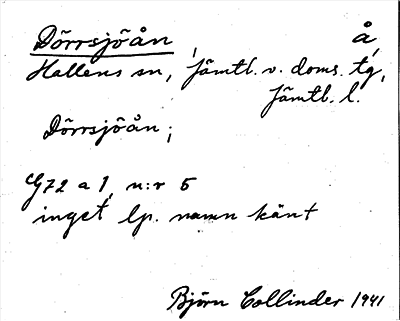 Dörrsjöån, å,
Hallens sn, Jämtl. v. doms. tg,
Jämtl. l.
Dörrsjöån;
G72 a 1, n:r 5
inget lp. namn känt
Björn Collinder 1941